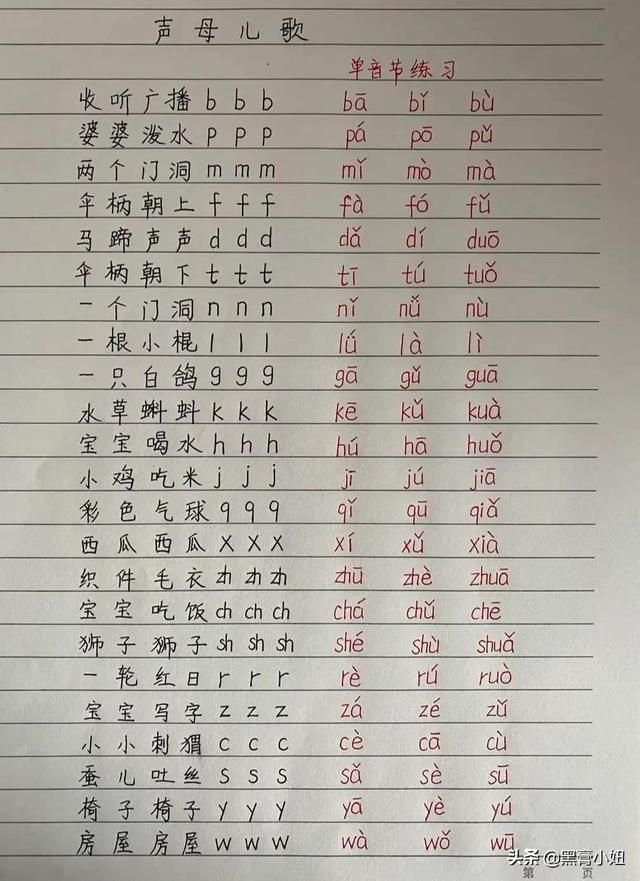 声母儿歌
单音节练习
收听广播 b b b bā bǐ bù
婆婆泼水 p p p pá pō pǔ
两个门洞 m m m mǐ mò mà
伞柄朝上 f f f fà fó fǔ
马蹄声声 d d d dǎ dí duō
伞柄朝下 t t t tī tú tuǒ
一个门洞 n n n nǐ nǚ nù
一根小棍 l l l lǘ là lì
一只白鸽 g g g gā gǔ guā
水草蝌蚪 k k k kē kǔ kuà
宝宝喝水 h h h hú hā huǒ
小鸡吃米 j j j jī jú jiā
彩色气球 q q q qǐ qū qiǎ
西瓜西瓜 x x x xí xǔ xià
织件毛衣 zh zh zh zhū zhè zhuā
宝宝吃饭 ch ch ch chá chǔ chē
狮子狮子 sh sh sh shé shù shuǎ
一轮红日 r r r rè rú ruò
宝宝写字 z z z zá zé zǔ
小小刺猬 c c c cè cā cù
蚕儿吐丝 s s s sǎ sè sū
椅子椅子 y y y yā yè yú
房屋房屋 w w w wà wǒ wū
头条 @黑膏小妞
第 页